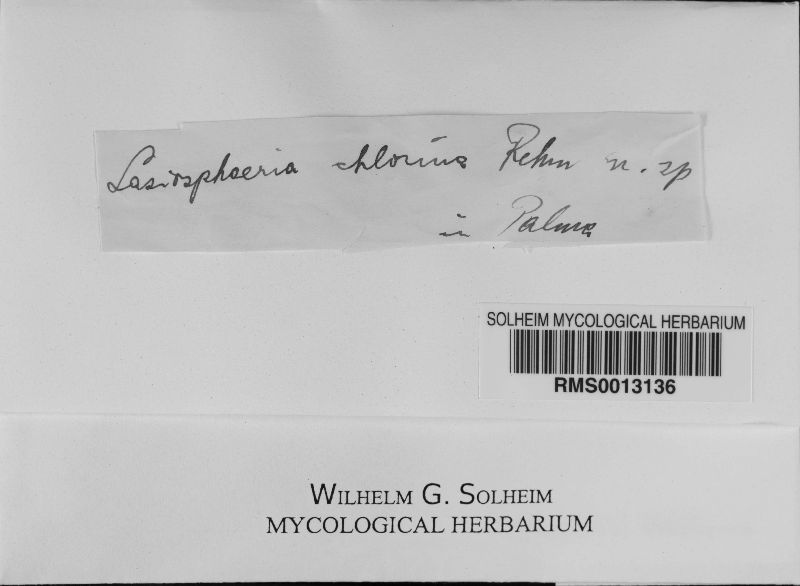 Lasiosphaeria chlorina Rehm n. sp
in Palma
SOLHEIM MYCOLOGICAL HERBARIUM
RMS0013136
WILHELM G. SOLHEIM
MYCOLOGICAL HERBARIUM